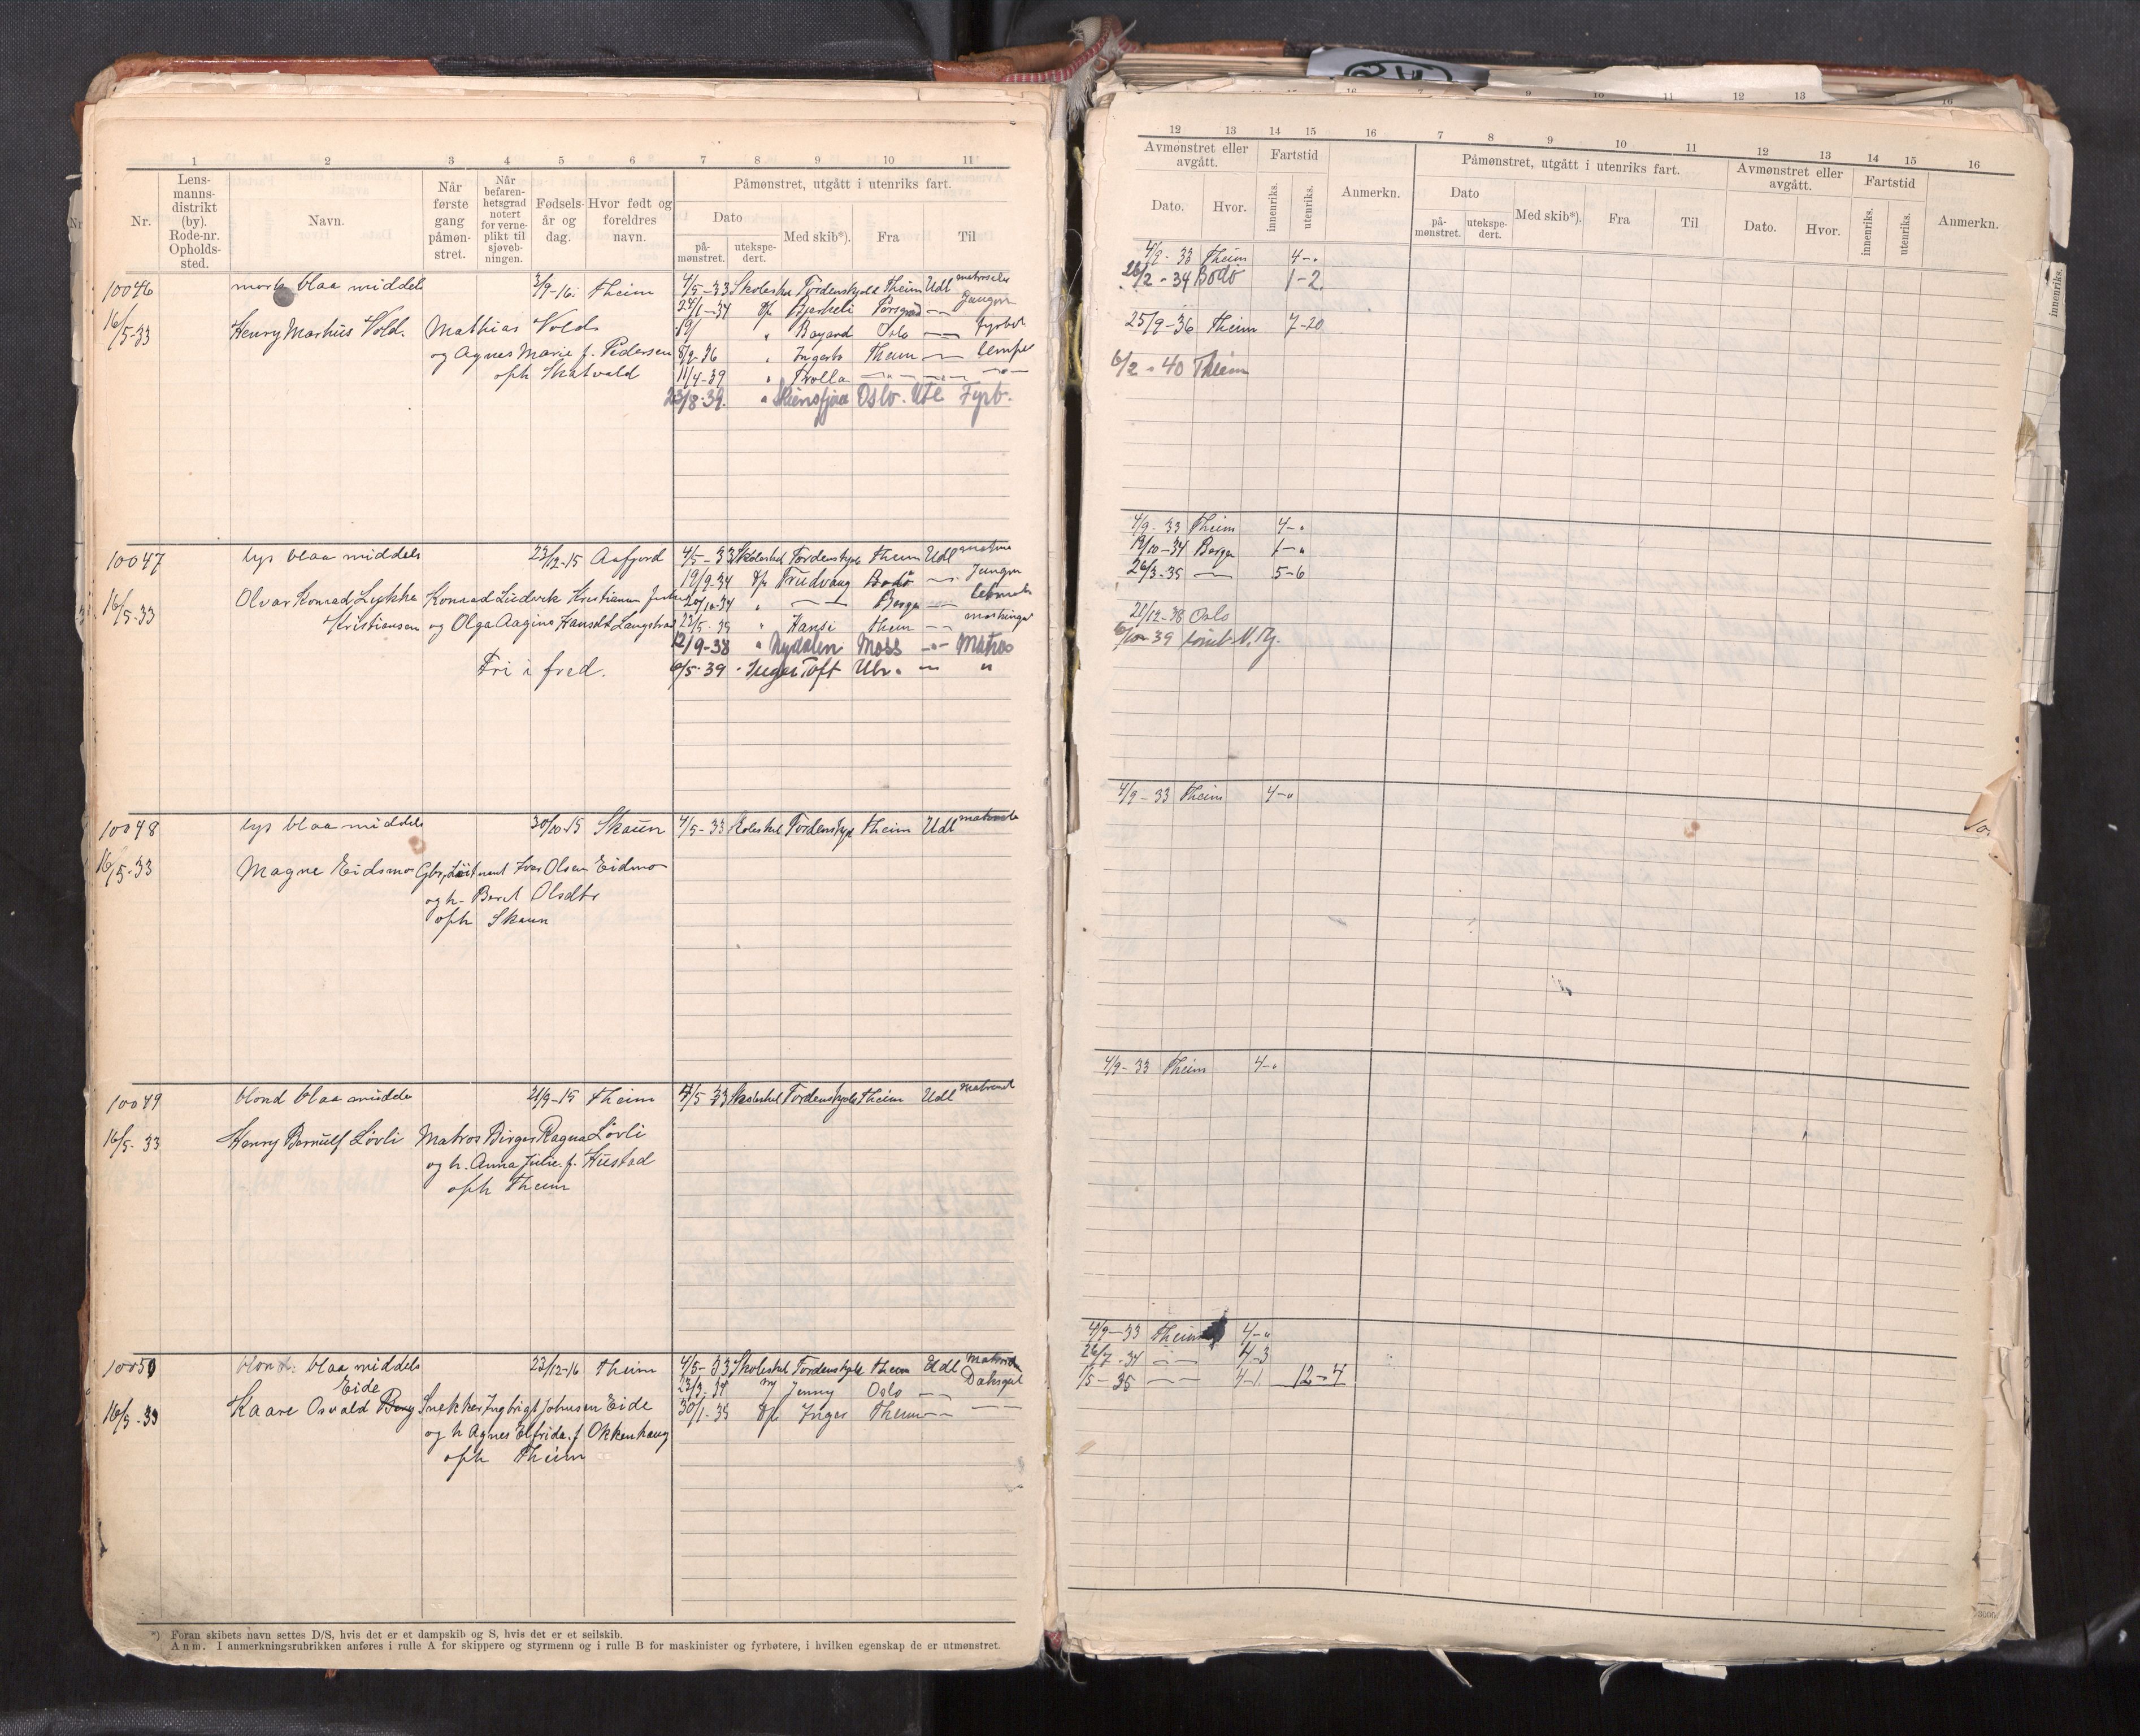 1 2 3 4 5 6 7 8 9 10 11
Nr.
Lens-
manns-
distrikt
(by).
Rode-nr.
Opholds-
sted.
Navn.
Når
første
gang
påmøn-
stret.
Når
befaren-
hetsgrad
notert
for verne-
plikt til
sjøveb-
ningen.
Fødsels-
år og
dag.
Hvor født og
foreldres
navn.
Påmønstret, utgått i utenriks fart.
Dato
på-
mønstret.
utekspe-
dert.
Med skib*).
Fra
Til
10046 mørk blaa middels 3/9-16 Theim 4/5-33 Skoleskel Tordenskjold Theim Udl
24/1-34 Bjerkeli Porsgrad — Jungm
16/5-33 Henry Markus Vold. Mathias Volds Bayard Oslo — Fyrbøt
og Agnes Marie f. Pedersen 8/2-36 " Ingerto Theim — Lemper
oph Skatvald 11/4-39 " Trolla — — —
23/8-39. " Skiensfjord Oslo. Utl Fyrb.
10047 lys blaa middels 23/12-15 Aafjord 4/5-33 Skoleskel Tordenskjold Theim Udl
19/9-34 Trudvang Bodø — Jungm
16/5-33 Olvar Konrad Lykke Konrad Ludvik Kristiansen 20/10-34 " — Bergen —
Kristiansen og Olga Aagine Hansdt Langstrad 22/5-35 " Hansi Theim —
12/9-38 " Nydalen Moss — Matros
Fri i fred. 6/5-39 " Inger Toft Utv. — "
10048 lys blaa middels 30/10-15 Skaun 4/5-33 Skoleskel Tordenskjol Theim Udl
16/5-33 Magne Eidsmo Gbr, Løitnant Iver Olsen Eidmo
og h. Beret Olsdtr
oph Skaun
10049 blond blaa middels 21/9-15 Theim 4/5 33 Skoleskel Tordenskjold Theim Udl
16/5-33 Henry Bernulf Løvli Matros Birger Ragna Løvli
og h. Anna Julie f. Hustad
oph Theim
10050 blond. blaa middels 23/12-16 Theim 4/5-33 Skoleskel Tordenskjold Theim Udl
Eide 23/3-34 Jenny Oslo — Daksgut
16/5-33 Kaare Osvald Berg Snekker Ingbrigt Johnsen Eide 30/1-35 Inger Theim — —
og h Agnes Elfrida f Okkenhaug
oph Theim
*) Foran skibets navn settes D/S, hvis det er et dampskib og S, hvis det er et seilskib.
Anm. I anmerkningsrubrikken anføres i rulle A for skippere og styrmenn og i rulle B for maskinister og fyrbøtere, i hvilken egenskap de er utmønstret.
12 13 14 15 16 7 8 9 10 11 12 13 14 15 16
Avmønstret eller
avgått.
Fartstid
Dato.
Hvor.
innenriks.
utenriks.
Anmerkn.
Påmønstret, utgått i utenriks fart.
Dato
på-
mønstret.
utekspe-
dert.
Med skib*).
Fra
Til
Avmønstret eller
avgått.
Fartstid
Dato.
Hvor.
innenriks.
utenriks.
Anmerkn.
innenriks.
4/9-33 Theim 4-"
26/2-34 Bodø 1-2
25/9-36 Theim 7-20
6/2-40 Theim
4/9-33 Theim 4-"
19/10-34 Bergen 1-"
26/3-35 — 5-6
21/12-38 Oslo
39 N.Y.
4/9-33 Theim 4-"
4/9-33 Theim 4-"
4/9-33 Theim 4-"
26/7-34 — 4-3
1/5-35 — 4-1 12-4